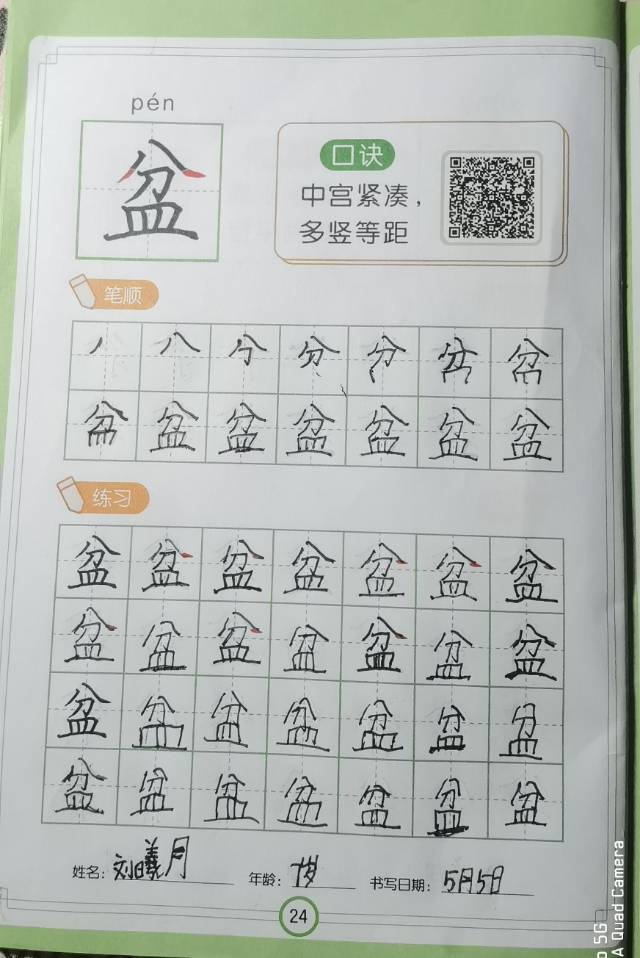 pén
盆
口诀
中宫紧凑，
多竖等距
笔顺
丿 八 分 分 分
盆 盆 盆 盆 盆 盆
练习
盆 盆 盆 盆 盆 盆 盆
盆 盆 盆 盆 盆 盆 盆
盆 盆 盆 盆 盆 盆 盆
盆 盆 盆 盆 盆 盆 盆
姓名：刘曦月 年龄：7岁 书写日期：5月5日
24
5G
A Quad Camera